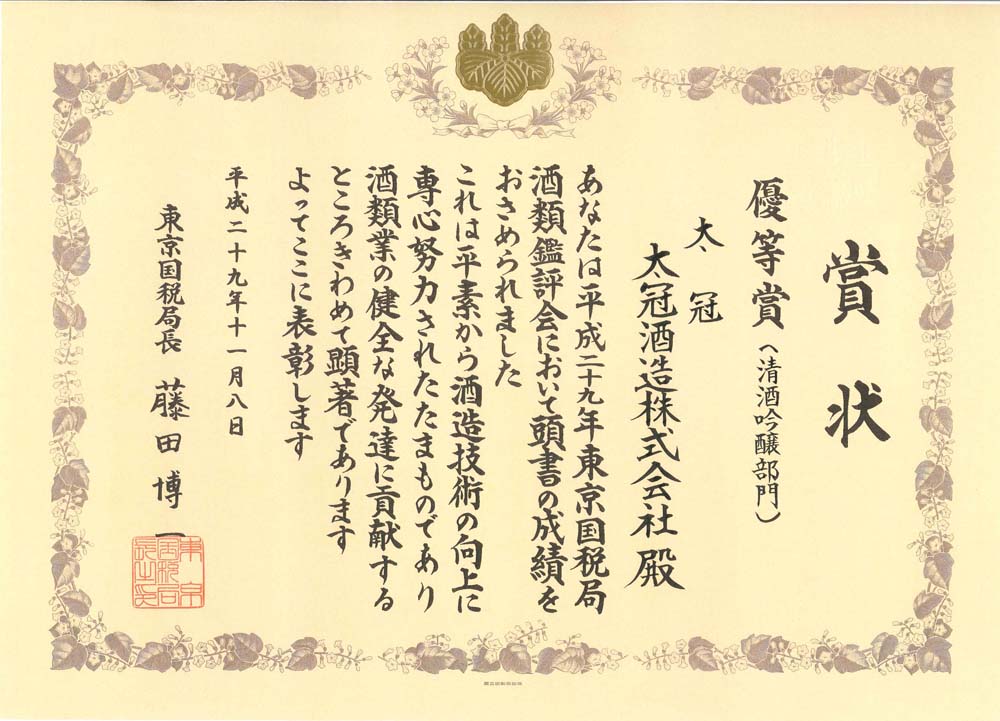 賞状
優等賞(清酒吟醸部門)
太冠
太冠酒造株式会社殿
あなたは平成二十九年東京国税局
酒類鑑評会において頭書の成績を
おさめられました
これは平素から酒造技術の向上に
専心努力されたたまものであり
酒類業の健全な発達に貢献する
ところきわめて顕著であります
よってここに表彰します
平成二十九年十一月八日
東京国税局長 藤田博一
東京
国税局
長之印